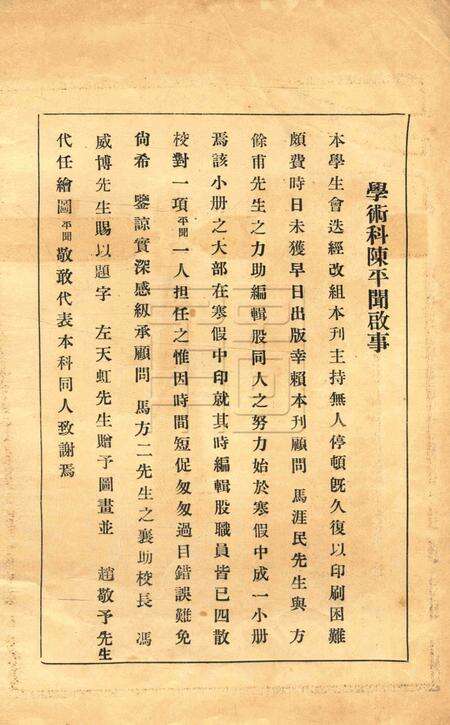 學術科陳平聞啟事
本學生會迭經改組本刊主持無人停頓旣久復以印刷困難
頗費時日未獲早日出版幸賴本刊顧問 馬涯民先生與 方
餘甫先生之力助編輯股同人之努力始於寒假中成一小册
焉該小册之大部在寒假中印就其時編輯股職員皆已四散
校對一項平聞一人担任之惟因時間短促匆匆過目錯誤難免
尙希 鑒諒實深感級承顧問 馬方二先生之襄助校長 馮
威博先生賜以題字 左天虹先生贈予圖畫並 趙敬予先生
代任繪圖平聞敬敢代表本科同人致謝焉